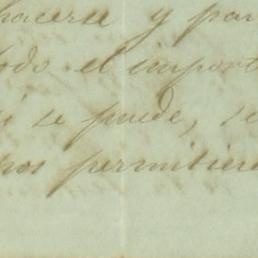 hacerse y par
odo el import
si se puede, se
nos permitiere